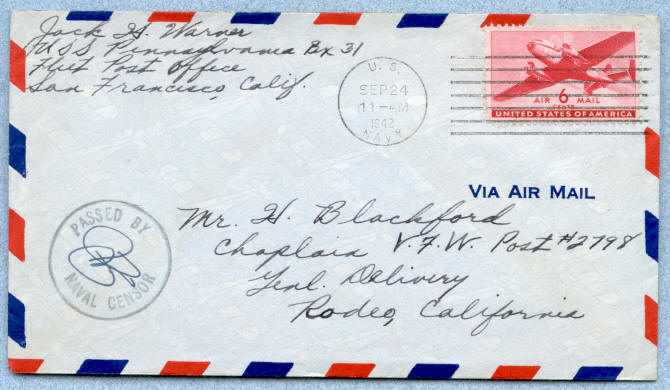 Jack H. Warner
USS Pennsylvania Bx 31
Fleet Post Office
San Francisco, Calif.
U. S.
SEP 24
11-AM
1942
NAVY
AIR 6 MAIL
CENTS
UNITED STATES OF AMERICA
VIA AIR MAIL
PASSED BY
NAVAL CENSOR
Mr. H. Blackford
Chaplain V.F.W. Post #2798
Genl. Delivery
Rodeo, California